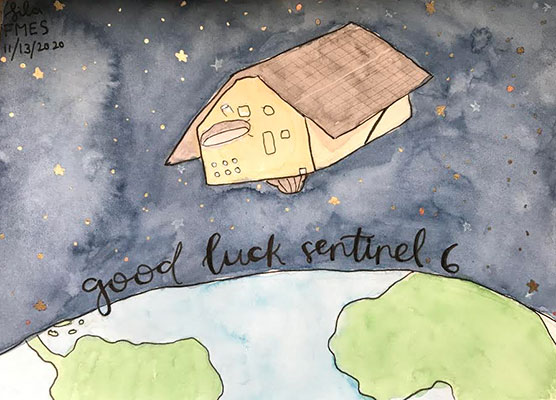 FMES
11/13/2020
good luck sentinel 6